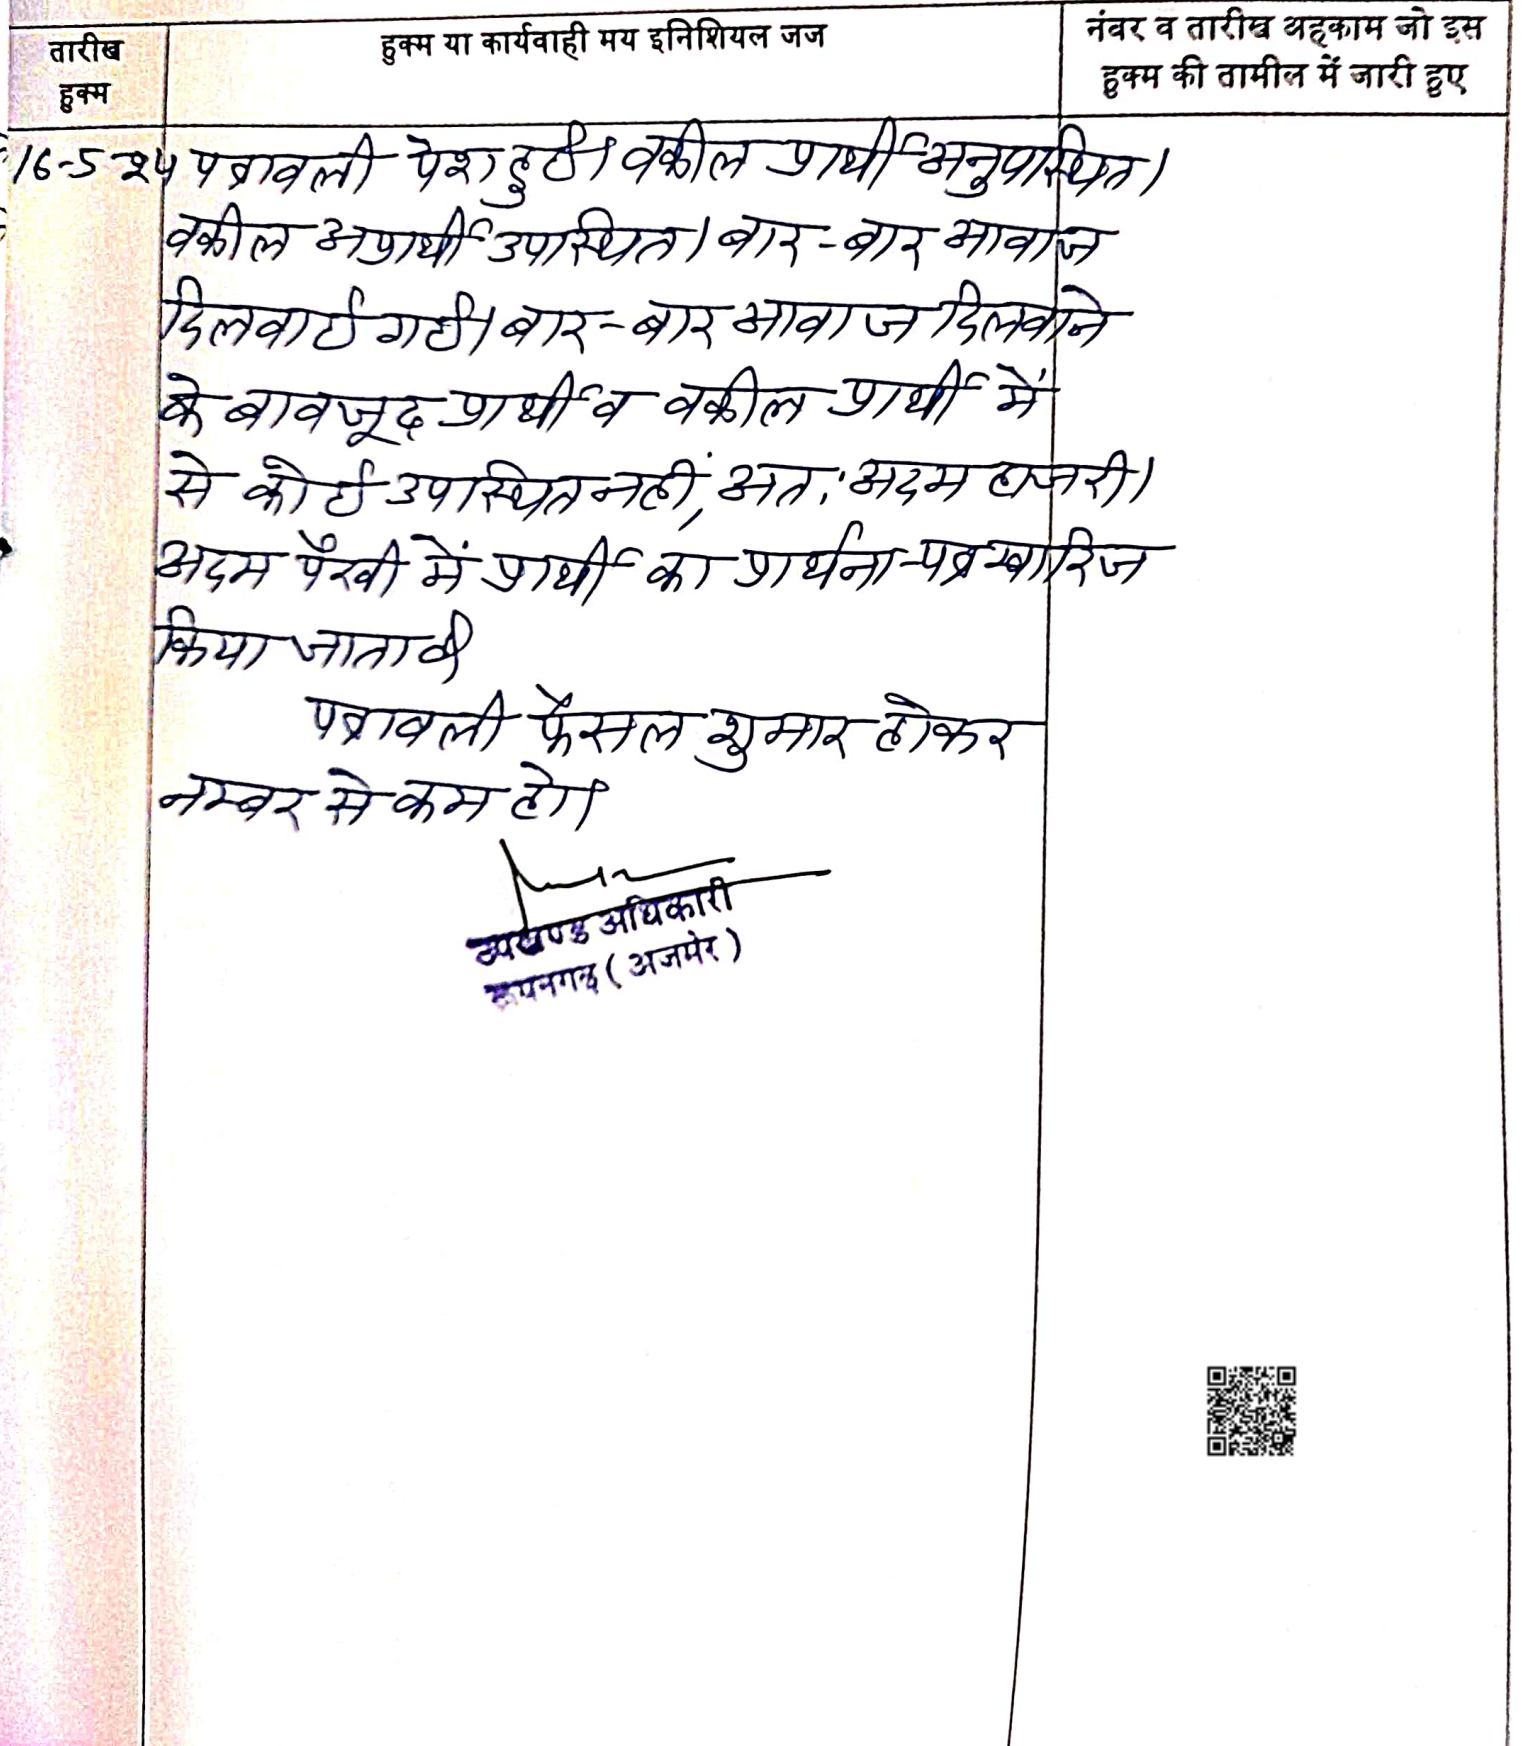 तारीख
हुक्म
हुक्म या कार्यवाही मय इनिशियल जज
नंबर व तारीख अहकाम जो इस
हुक्म की तामील में जारी हुए
16-5-24 पत्रावली पेश हुई। वकील प्रार्थी अनुपस्थित।
वकील अप्रार्थी उपस्थित। बार-बार आवाज
दिलवाई गई। बार-बार आवाज दिलवाने
के बावजूद प्रार्थी व वकील प्रार्थी में
से कोई उपस्थित नहीं, अतः अदम हाजरी।
अदम पैरवी में प्रार्थी का प्रार्थना-पत्र खारिज
किया जाता है।
पत्रावली फैसल शुमार होकर
नम्बर से कम हो।
उपखण्ड अधिकारी
रूपनगढ़ (अजमेर)